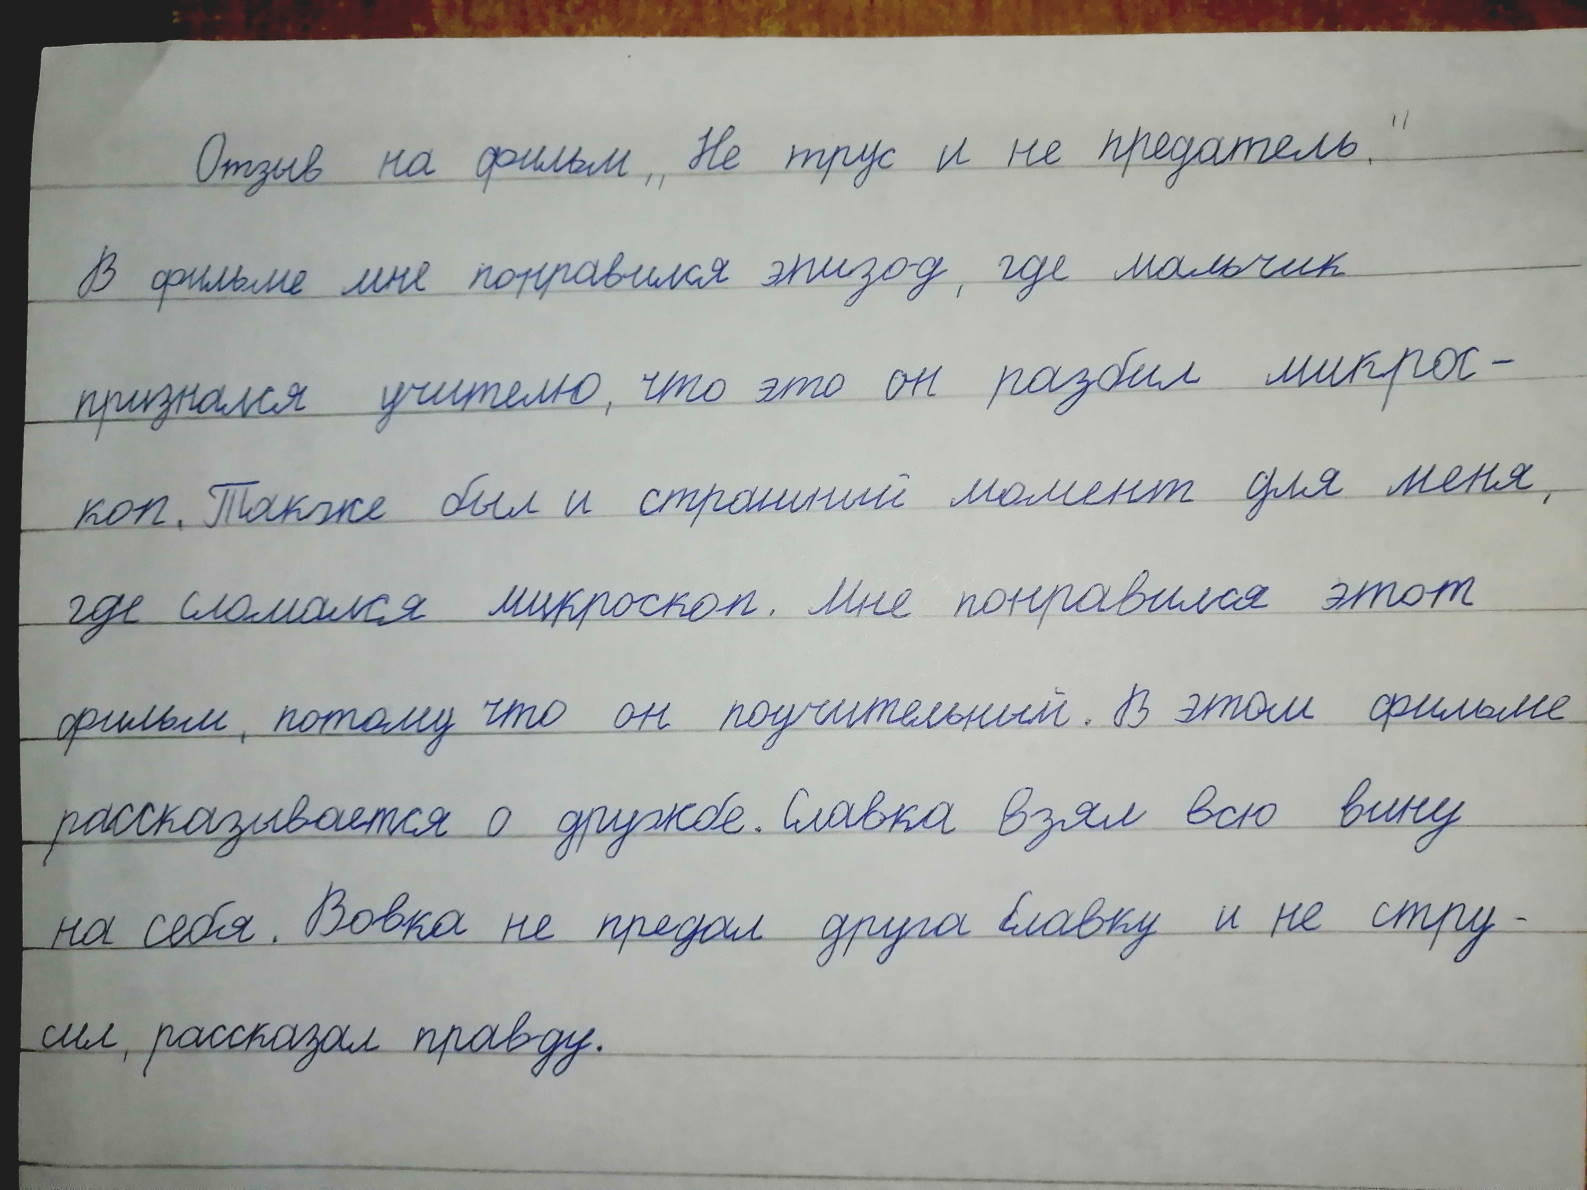 Отзыв на фильм „Не трус и не предатель."
В фильме мне понравился эпизод, где мальчик
признался учителю, что это он разбил микрос-
коп. Также был и страшный момент для меня,
где сломался микроскоп. Мне понравился этот
фильм, потому что он поучительный. В этом фильме
рассказывается о дружбе. Славка взял всю вину
на себя. Вовка не предал друга Славку и не стру-
сил, рассказал правду.